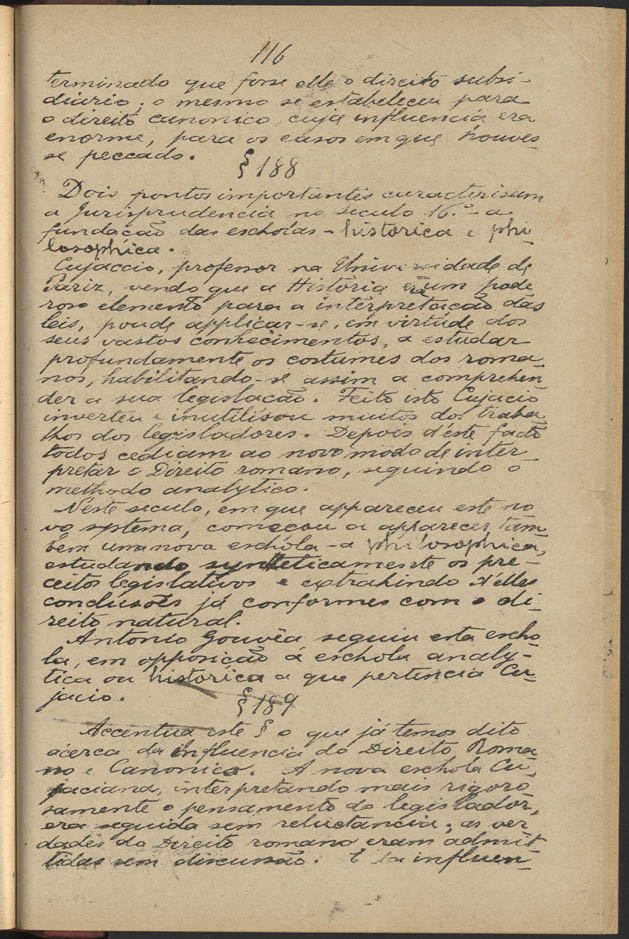 116
terminado que fosse elle o direito subsi-
diario; o mesmo se estabeleceu para
o direito canonico, cuja influencia era
enorme, para os casos em que houves-
se peccado.
§ 188
Dois pontos importantes caracterisam
a Jurisprudencia no seculo 16.º - a
fundação das escholas - historica e phi-
losophica.
Cujaccio, professor na Universidade de
Pariz, vendo que a Historia era um pode
roso elemento para a interpretação das
leis, poude applicar-se, em virtude dos
seus vastos conhecimentos, a estudar
profundamente os costumes dos roma-
nos, habilitando-se assim a comprehen
der a sua legislação. Feito isto Cujacio
inverteu e inutilisou muitos dos traba-
lhos dos legisladores. Depois d'este facto
todos cediam ao novo modo de inter
pretar o Direito romano, seguindo o
methodo analytico.
N'este seculo, em que appareceu este no
vo systema, começou a apparecer tam
bem uma nova eschola - a philosophica,
estudando syntheticamente os pre-
ceitos legislativos e extrahindo d'elles
conclusões já conformes com o di-
reito natural.
Antonio Gouvêa seguiu esta escho
la, em opposição á eschola analy-
tica ou historica a que pertencia Cu-
jacio.
§ 189
Accentua este § o que já temos dito
ácerca da influencia do Direito Roma
no e Canonico. A nova eschola Cu-
jaciana, interpretando mais rigoro
samente o pensamento do legislador,
era seguida sem reluctancia; as ver
dades do Direito romano eram admit
tidas sem discussão. E influen-